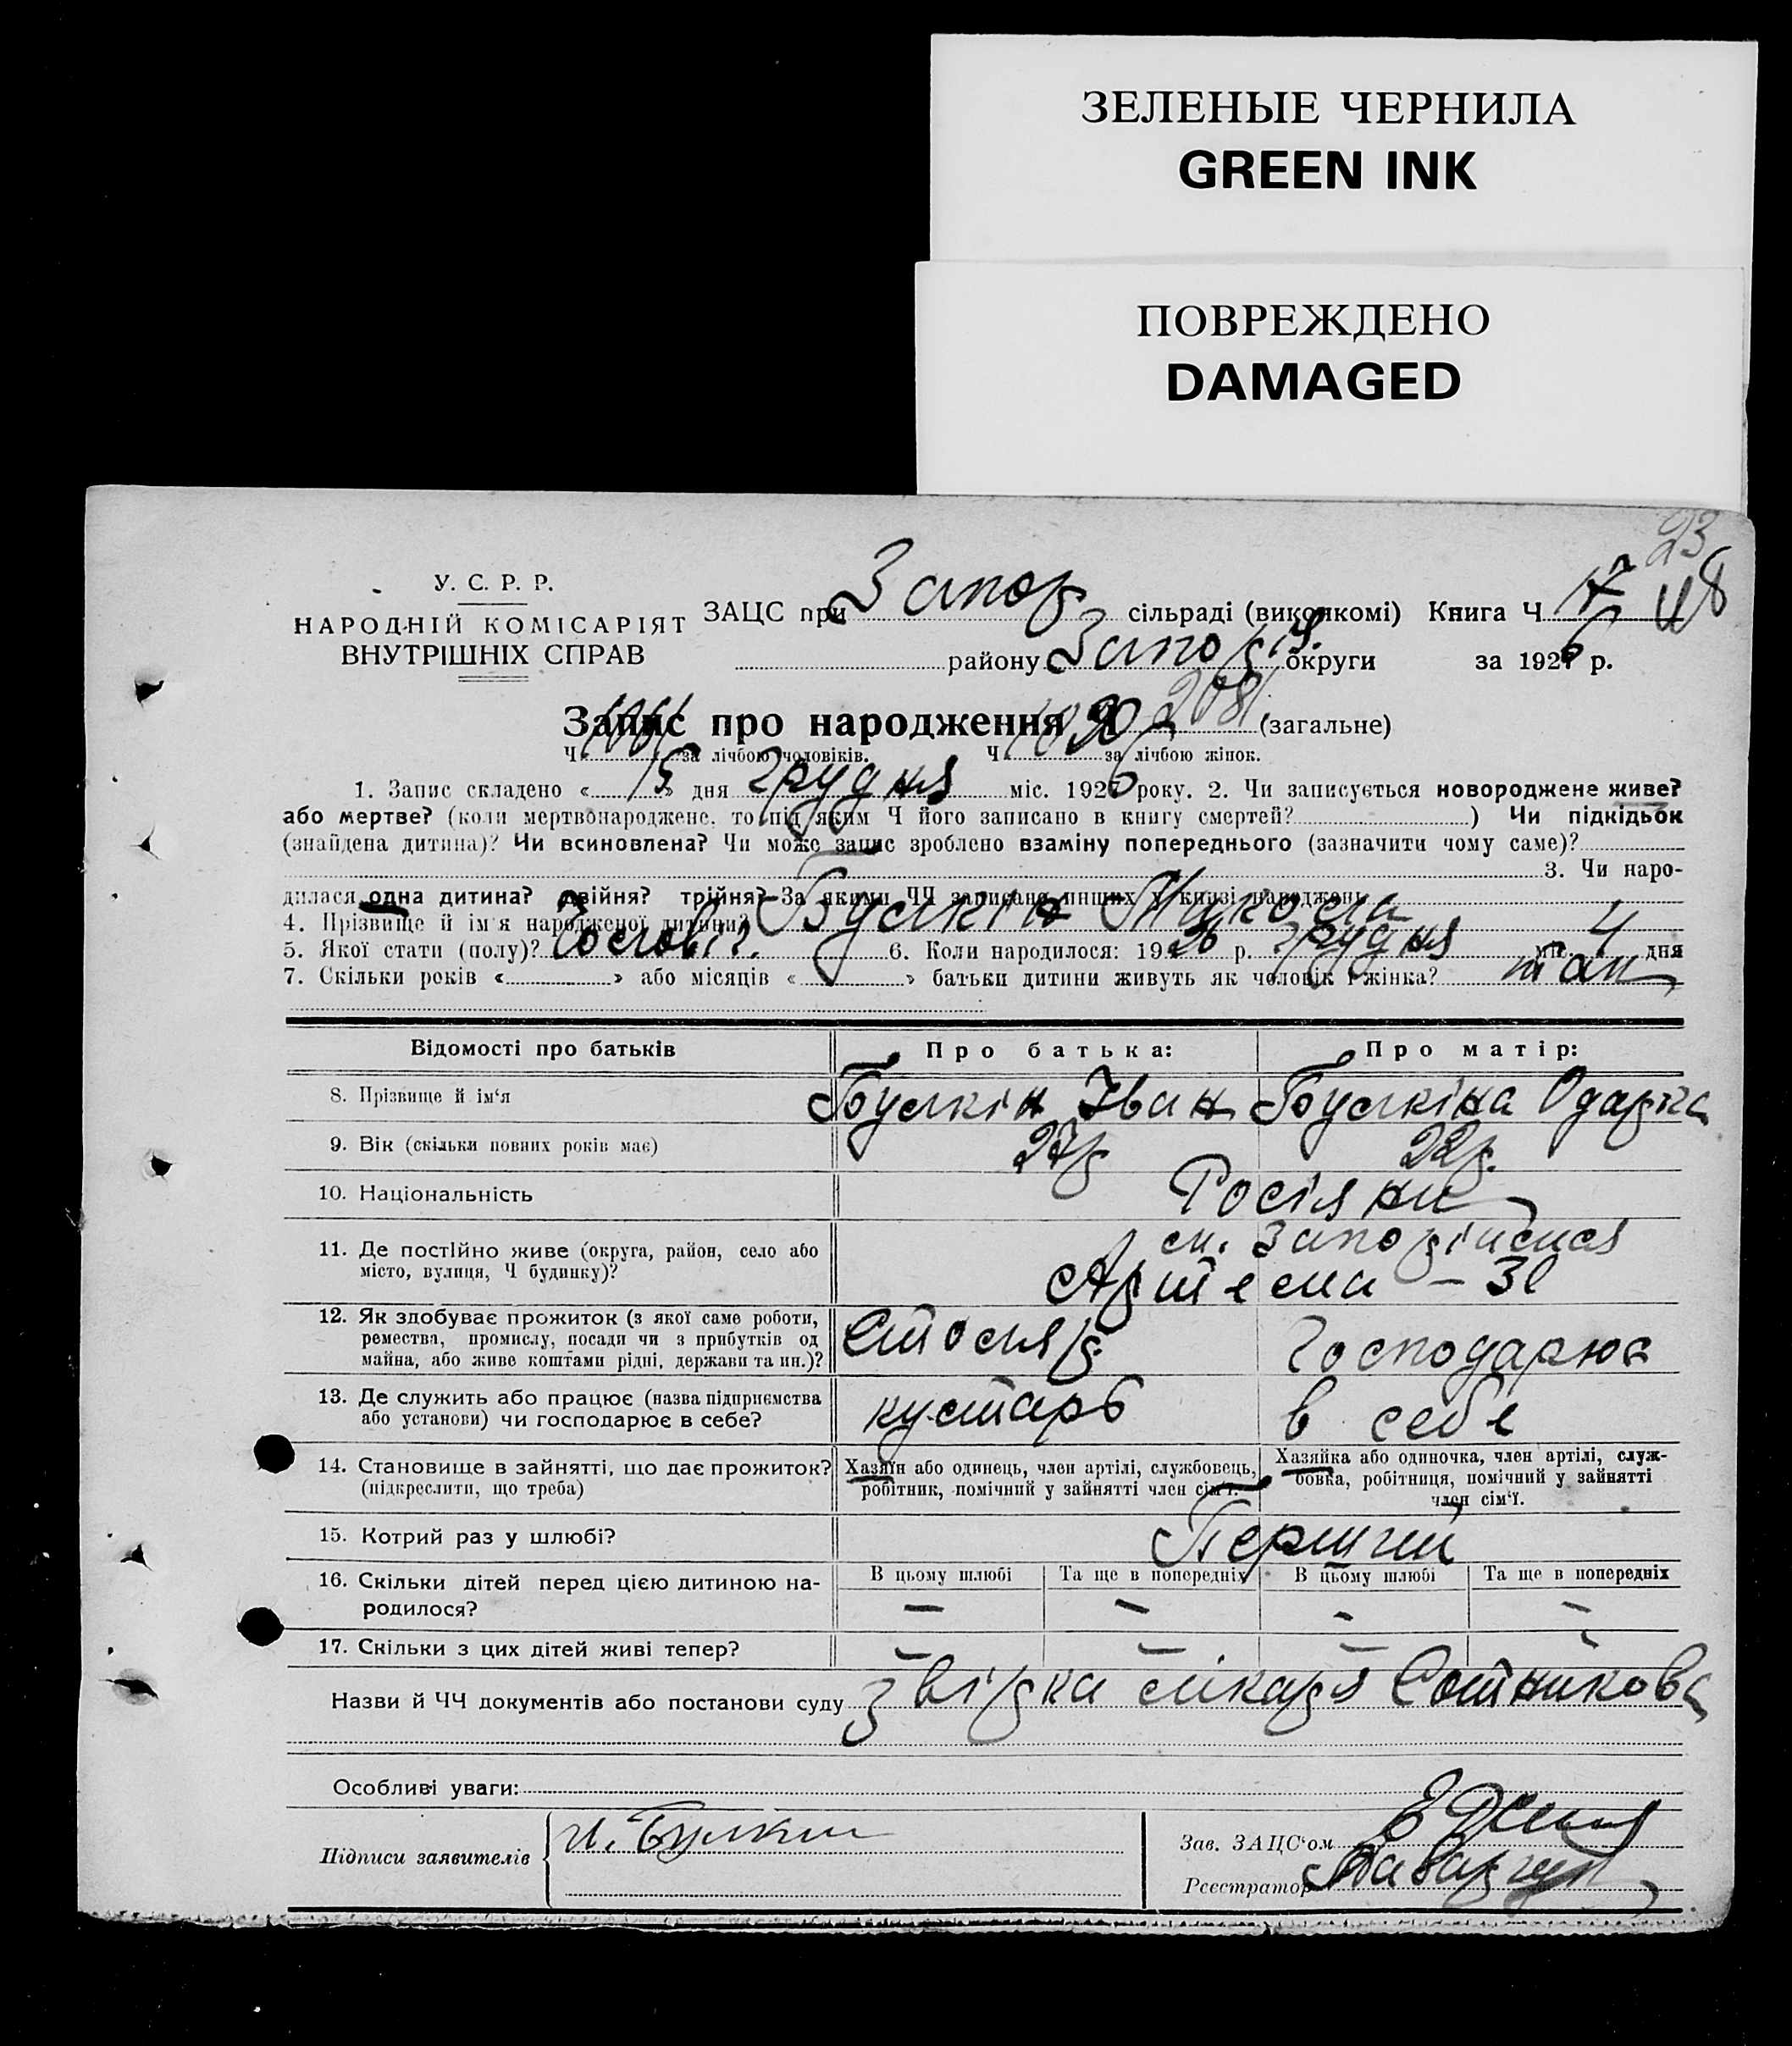 ЗЕЛЕНЫЕ ЧЕРНИЛА
GREEN INK
ПОВРЕЖДЕНО
DAMAGED
23
У. С. Р. Р.
НАРОДНІЙ КОМІСАРІЯТ
ВНУТРІШНІХ СПРАВ
ЗАЦС при Запор сільраді (виконкомі) Книга Ч 17
району Запоріз. округи за 1926 р.
Запис про народження Ч 2081 (загальне)
Ч за лічбою чоловіків. Ч за лічбою жінок.
1. Запис складено « 15 » дня грудня міс. 1926 року. 2. Чи записується новороджене живе?
або мертве? (коли мертвонароджене, то під яким Ч його записано в книгу смертей? ) Чи підкідьок
(знайдена дитина)? Чи всиновлена? Чи може запис зроблено взаміну попереднього (зазначити чому саме)?
3. Чи наро-
дилася одна дитина? двійня? трійня? За якими ЧЧ записано инших у книзі народжень
4. Прізвище й ім'я народженої дитини? Булкін Микола
5. Якої стати (полу)? Чоловіч. 6. Коли народилося: 1926 р. грудня міс. 4 дня
7. Скільки років « » або місяців « » батьки дитини живуть як чоловік і жінка? так
Відомості про батьків Про батька: Про матір:
8. Прізвище й ім'я Булкін Іван Булкіна Одарка
9. Вік (скільки повних років має) 27р 22р.
10. Національність Росіяни
11. Де постійно живе (округа, район, село або м. Запоріжжя
місто, вулиця, Ч будинку)? Артема – 31
12. Як здобуває прожиток (з якої саме роботи, Столяр Господарює
ремества, промислу, посади чи з прибутків од
майна, або живе коштами рідні, держави та ин.)?
13. Де служить або працює (назва підприємства кустарь в себе
або установи) чи господарює в себе?
14. Становище в зайнятті, що дає прожиток? Хазяїн або одинець, член артілі, службовець, Хазяйка або одиночка, член артілі, служ-
(підкреслити, що треба) робітник, помічний у зайнятті член сім'ї. бовка, робітниця, помічний у зайнятті
член сім'ї.
15. Котрий раз у шлюбі? Перший
16. Скільки дітей перед цією дитиною на- В цьому шлюбі Та ще в попередніх В цьому шлюбі Та ще в попередніх
родилося? – – – –
17. Скільки з цих дітей живі тепер? – – – –
Назви й ЧЧ документів або постанови суду звірка лікаря Сотникова
Особливі уваги:
Підписи заявителів И. Булкин
Зав. ЗАЦС'ом
Реєстратор